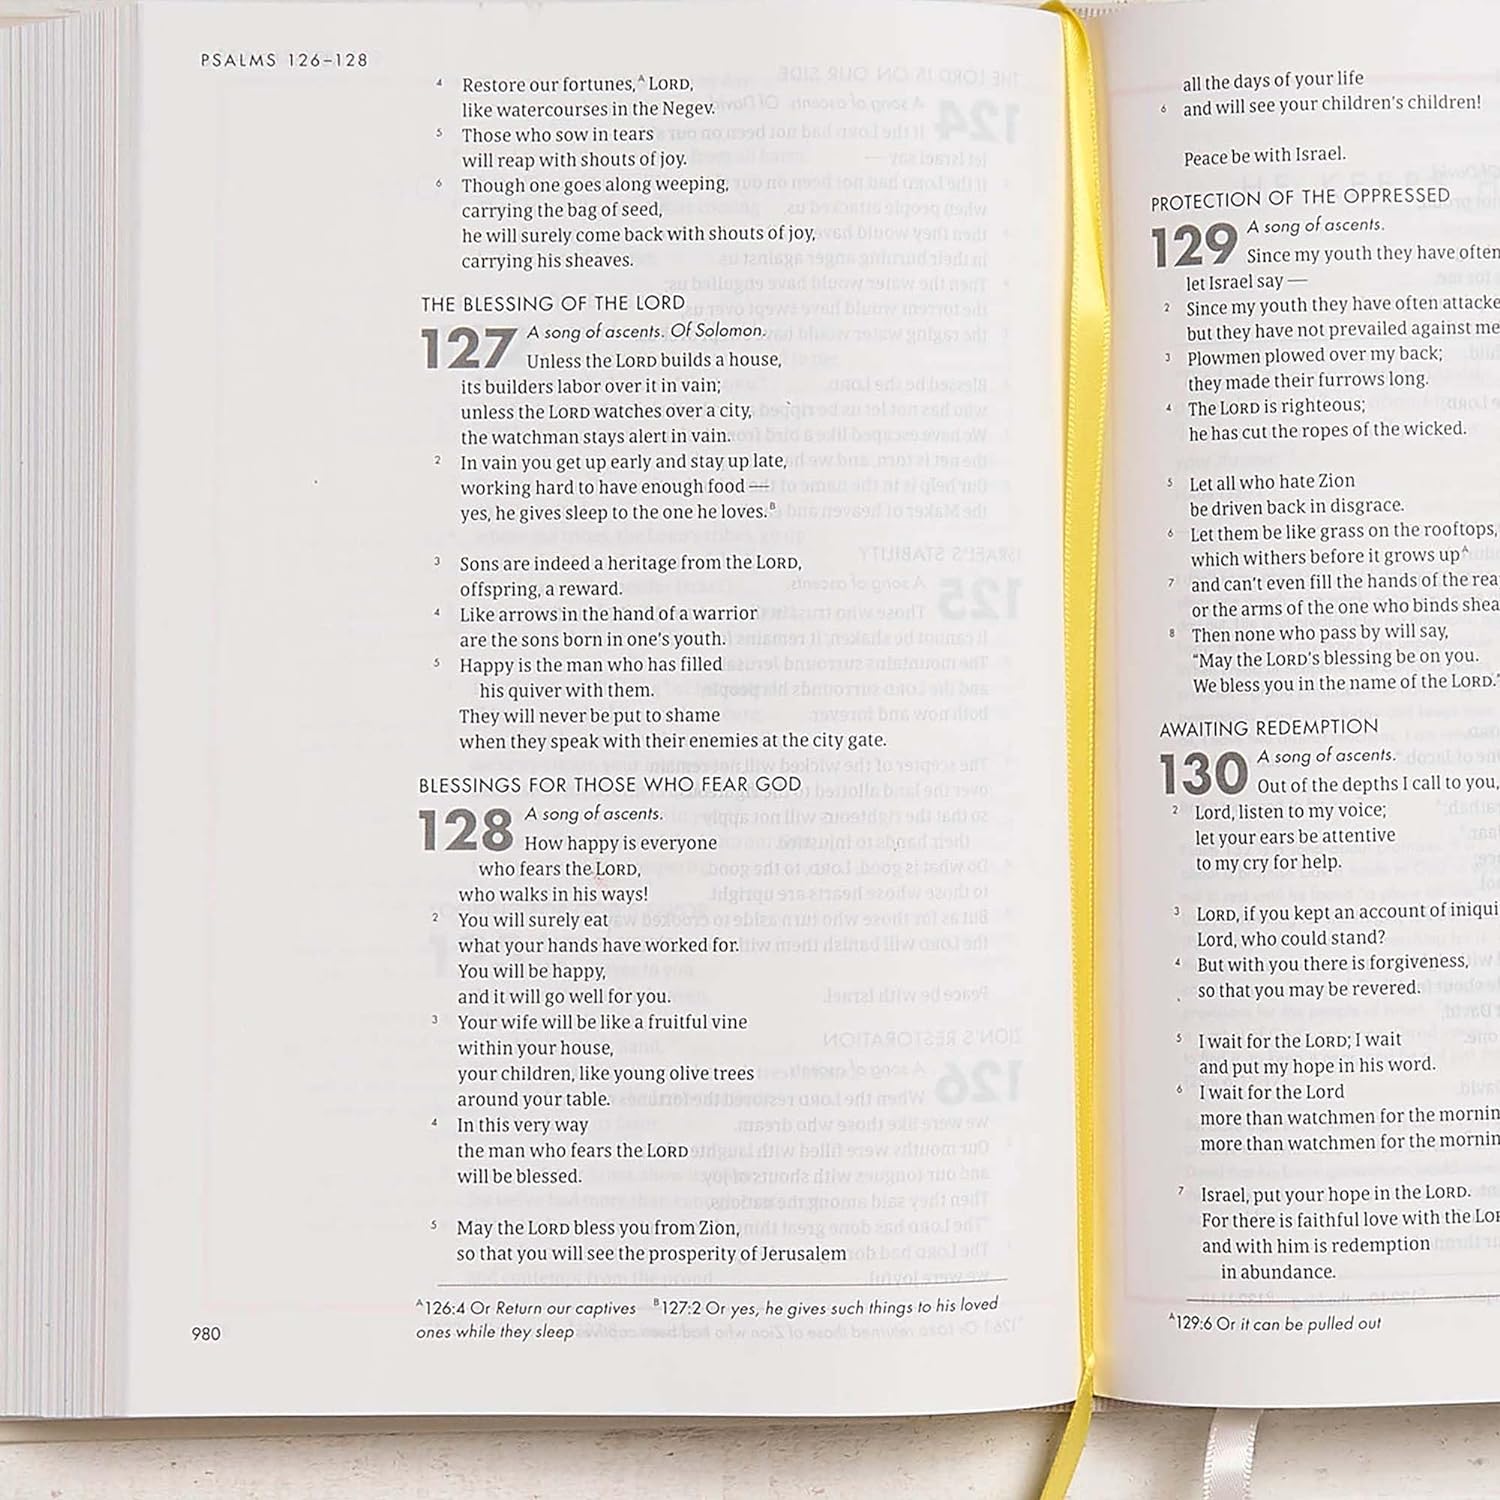 PSALMS 126–128
4 Restore our fortunes,ᴬ LORD,
like watercourses in the Negev.
5 Those who sow in tears
will reap with shouts of joy.
6 Though one goes along weeping,
carrying the bag of seed,
he will surely come back with shouts of joy,
carrying his sheaves.
THE BLESSING OF THE LORD
127 A song of ascents. Of Solomon.
Unless the LORD builds a house,
its builders labor over it in vain;
unless the LORD watches over a city,
the watchman stays alert in vain.
2 In vain you get up early and stay up late,
working hard to have enough food —
yes, he gives sleep to the one he loves.ᴮ
3 Sons are indeed a heritage from the LORD,
offspring, a reward.
4 Like arrows in the hand of a warrior
are the sons born in one's youth.
5 Happy is the man who has filled
his quiver with them.
They will never be put to shame
when they speak with their enemies at the city gate.
BLESSINGS FOR THOSE WHO FEAR GOD
128 A song of ascents.
How happy is everyone
who fears the LORD,
who walks in his ways!
2 You will surely eat
what your hands have worked for.
You will be happy,
and it will go well for you.
3 Your wife will be like a fruitful vine
within your house,
your children, like young olive trees
around your table.
4 In this very way
the man who fears the LORD
will be blessed.
5 May the LORD bless you from Zion,
so that you will see the prosperity of Jerusalem
ᴬ126:4 Or Return our captives ᴮ127:2 Or yes, he gives such things to his loved
ones while they sleep
980
all the days of your life
6 and will see your children's children!
Peace be with Israel.
PROTECTION OF THE OPPRESSED
129 A song of ascents.
Since my youth they have often
let Israel say —
2 Since my youth they have often
but they have not prevailed against me
3 Plowmen plowed over my back;
they made their furrows long.
4 The LORD is righteous;
he has cut the ropes of the wicked.
5 Let all who hate Zion
be driven back in disgrace.
6 Let them be like grass on the rooftops,
which withers before it grows upᴬ
7 and can't even fill the hands of the
or the arms of the one who binds
8 Then none who pass by will say,
"May the LORD's blessing be on you.
We bless you in the name of the LORD."
AWAITING REDEMPTION
130 A song of ascents.
Out of the depths I call to you,
2 Lord, listen to my voice;
let your ears be attentive
to my cry for help.
3 LORD, if you kept an account of
Lord, who could stand?
4 But with you there is forgiveness,
so that you may be revered.
5 I wait for the LORD; I wait
and put my hope in his word.
6 I wait for the Lord
more than watchmen for the
more than watchmen for the
7 Israel, put your hope in the LORD.
For there is faithful love with the
and with him is redemption
in abundance.
ᴬ129:6 Or it can be pulled out